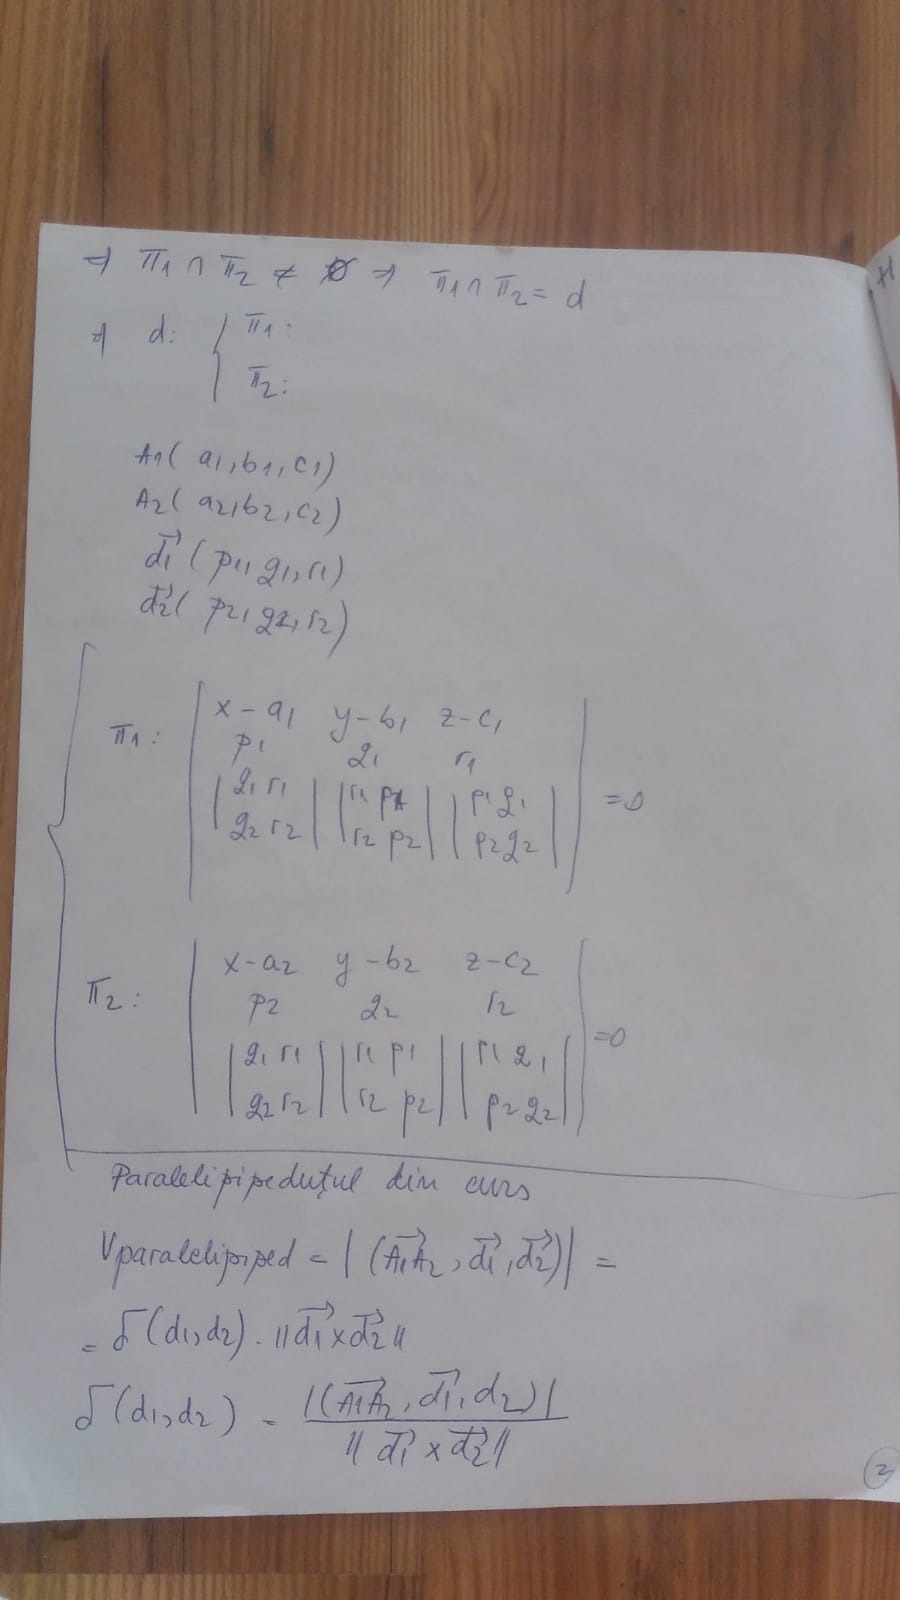 ⇒ π1 ∩ π2 ≠ ∅ ⇒ π1 ∩ π2 = d
⇒ d: { π1:
π2:
A1( a1, b1, c1)
A2( a2, b2, c2)
d1 ( p1, q1, r1)
d2( p2, q2, r2)
π1: | x-a1 y-b1 z-c1
p1 q1 r1
| q1 r1 | | r1 p1 | | p1 q1 | =0
| q2 r2 | | r2 p2 | | p2 q2 |
π2: | x-a2 y-b2 z-c2
p2 q2 r2
| q1 r1 | | r1 p1 | | p1 q1 | =0
| q2 r2 | | r2 p2 | | p2 q2 |
Paralelipipeduțul din curs
Vparalelipiped = | (A1A2, d1, d2)| =
= δ(d1,d2) · ||d1 x d2||
δ(d1,d2) = |(A1A2, d1, d2)|
|| d1 x d2||
2